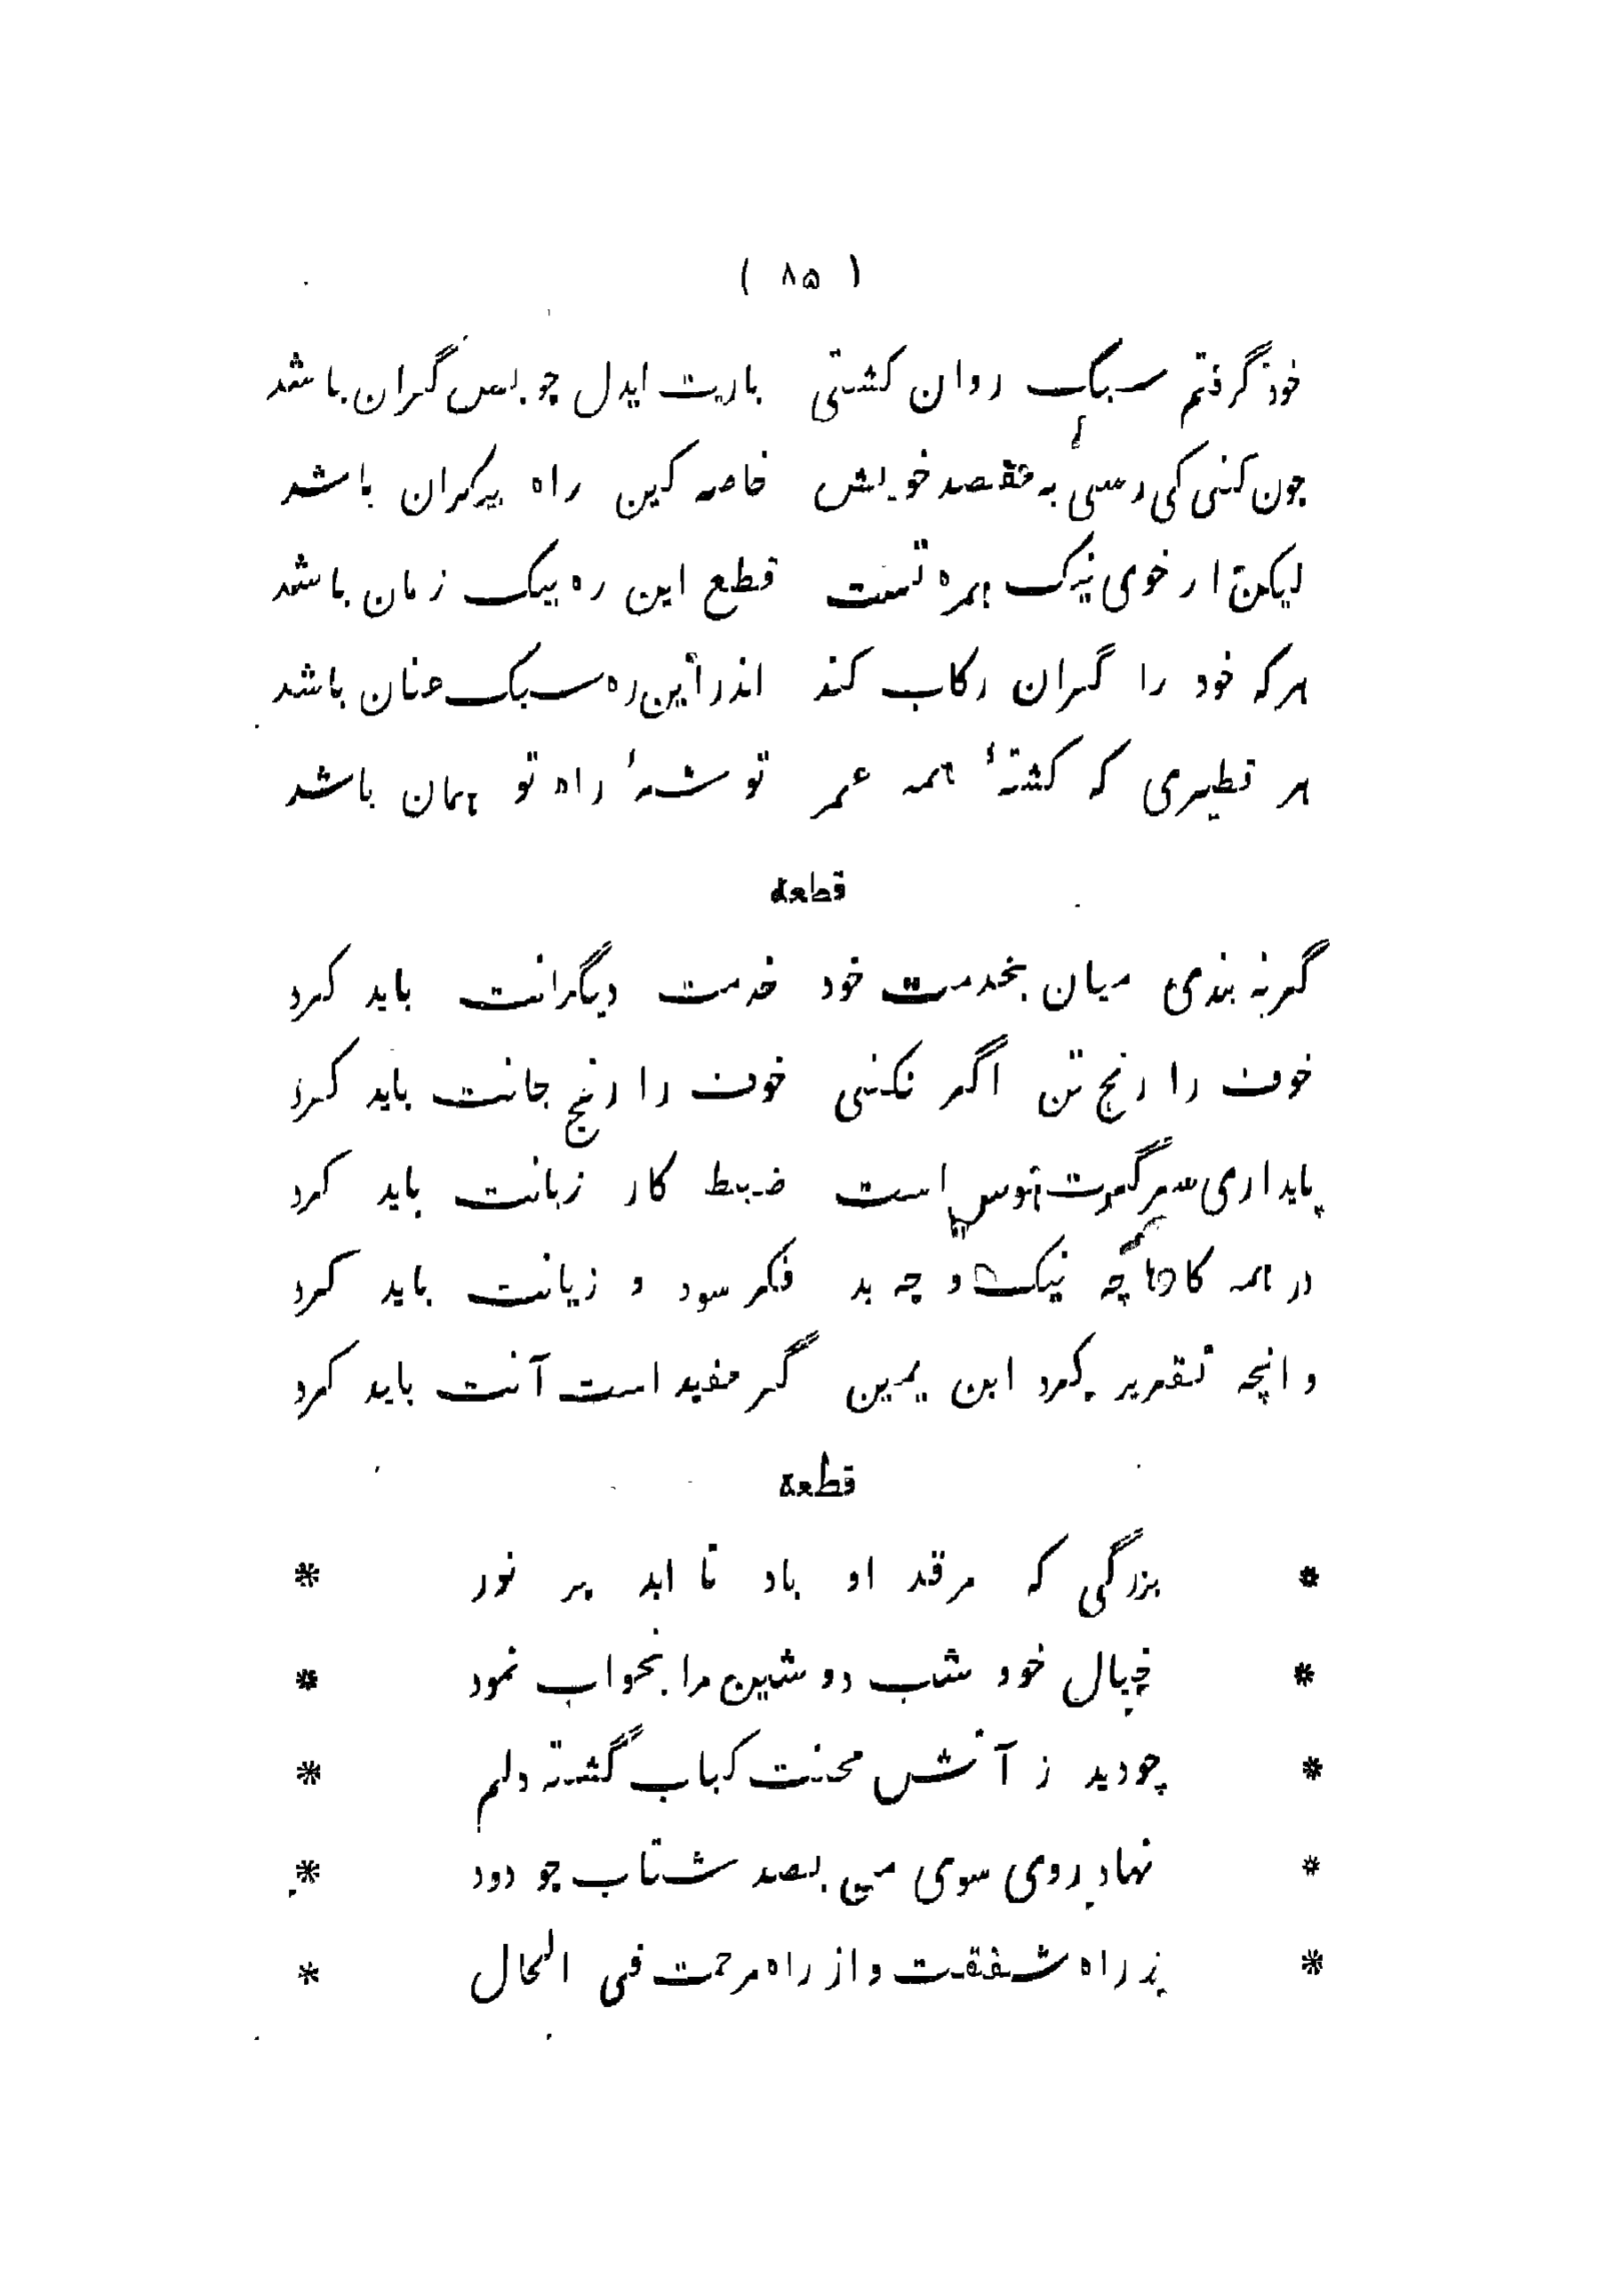 ( ۸۵ )
خود گرفتم سبک روان کشتی بارت ایدل چو بس گران باشد
چون کنی کی رسی به مقصد خویش خاصه کین راه بیکران باشد
لیکن ار خوی نیک همره تست قطع این ره بیک زمان باشد
هرکه خود را گران رکاب کند اندر این ره سبک عنان باشد
هر قطیری که کشتهٔ همه عمر توشهٔ راه تو همان باشد
قطعه
گر نه بندی میان بخدمت خود خدمت دیگرانت باید کرد
خون را رنج تن اگر نکنی خون را رنج جانت باید کرد
پایداری سرگرت هوس است ضبط کار زبانت باید کرد
در همه کارها چه نیک و چه بد فکر سود و زیانت باید کرد
وانچه تقریر کرد ابن یمین گر مفید است آنت باید کرد
قطعه
* بزرگی که مرقد او باد تا ابد پر نور *
* خیال خود شب دوشین مرا بخواب نمود *
* چو دید ز آتش محنت کباب گشته دلم *
* نهاد روی سوی من بصد شتاب چو دود *
* ز راه شفقت و از راه مرحمت فی الحال *